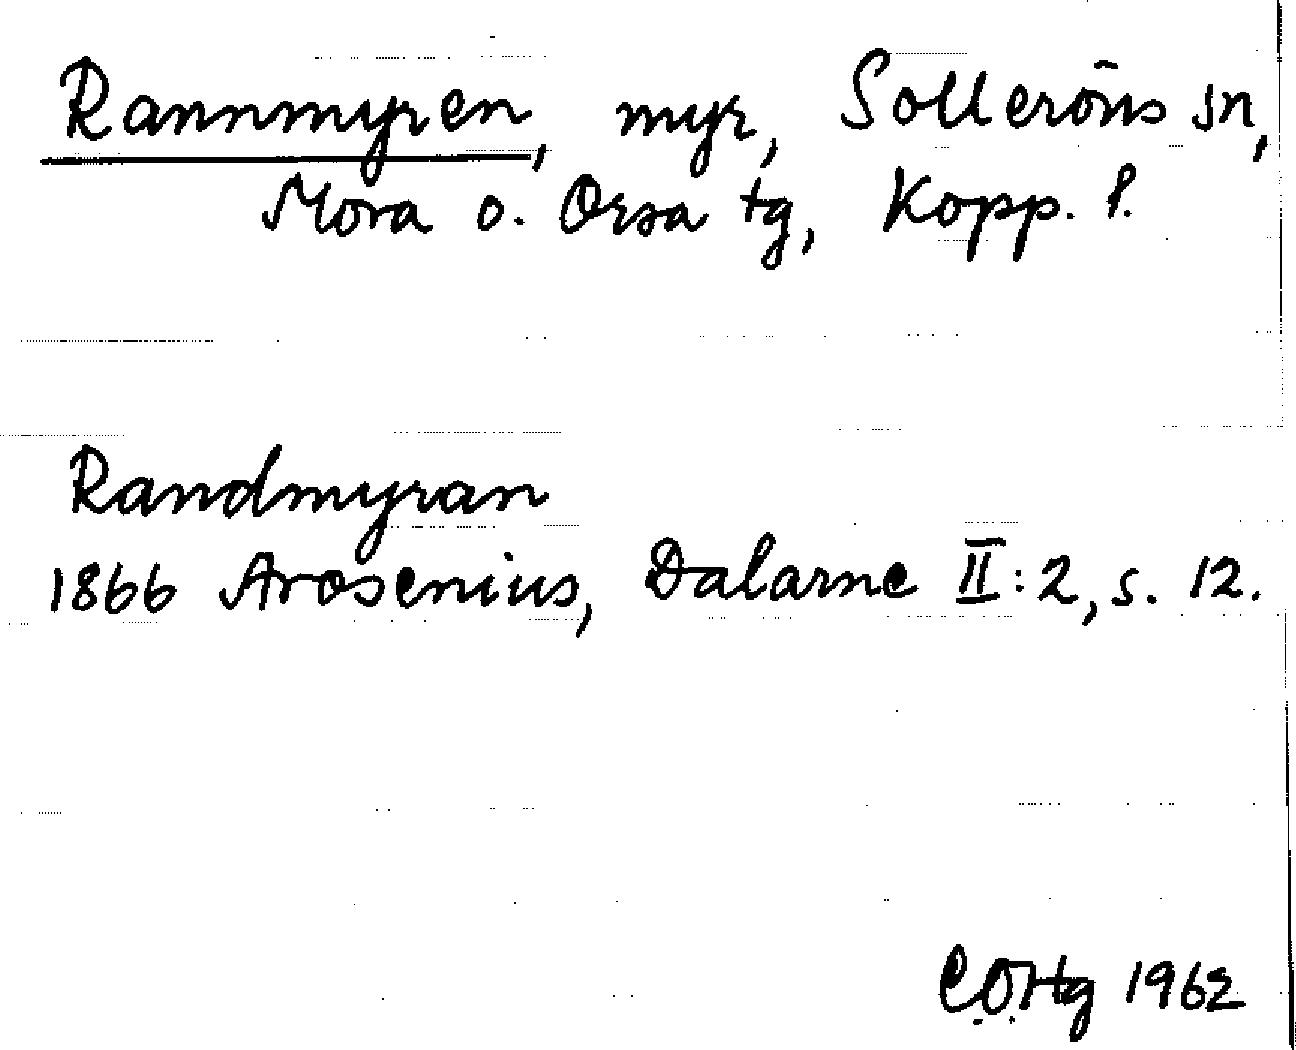 Rannmyren, myr, Solleröns sn,
Mora o. Orsa tg, Kopp. l.
Randmyran
1866 Arosenius, Dalarne II:2, s. 12.
1962